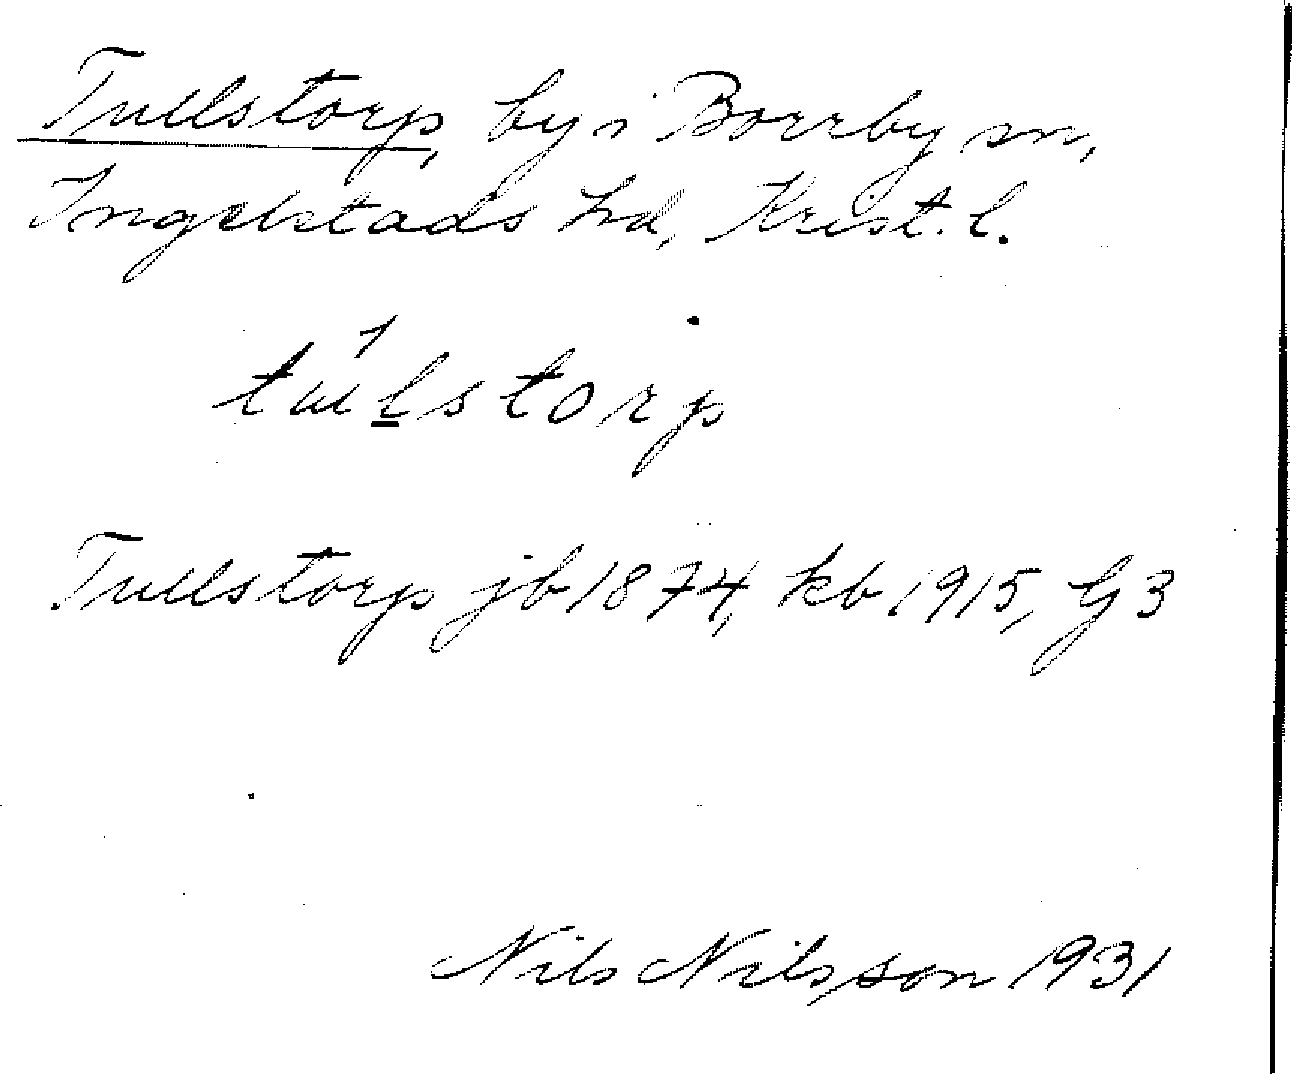 Tullstorp, by i Borrby sn,
Ingelstads hd, Krist. l.
tɯ́l̲storp
Tullstorp jb 1874, kb 1915, G 3
Nils Nilsson 1931